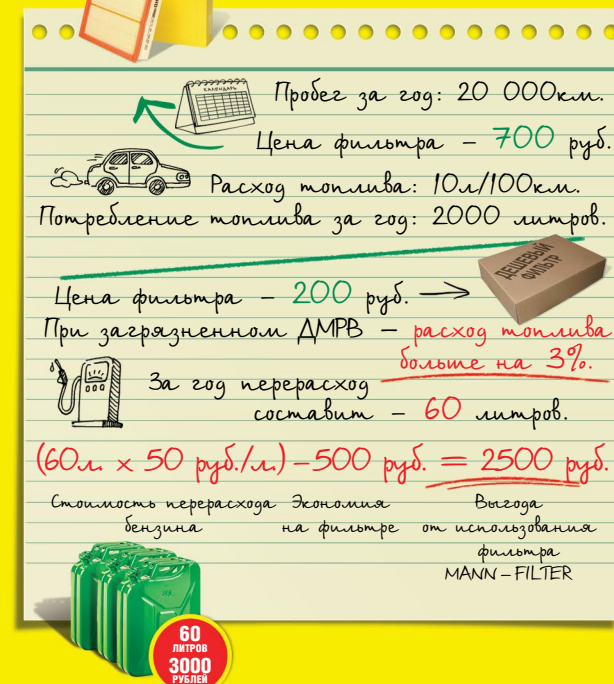 КАЛЕНДАРЬ
Пробег за год: 20 000км.
Цена фильтра – 700 руб.
Расход топлива: 10л/100км.
Потребление топлива за год: 2000 литров.
ДЕШЕВЫЙ
ФИЛЬТР
Цена фильтра – 200 руб.
При загрязненном ДМРВ – расход топлива
больше на 3%.
За год перерасход
составит – 60 литров.
(60л. х 50 руб./л.) – 500 руб. = 2500 руб.
Стоимость перерасхода Экономия Выгода
бензина на фильтре от использования
фильтра
MANN – FILTER
60
ЛИТРОВ
3000
РУБЛЕЙ